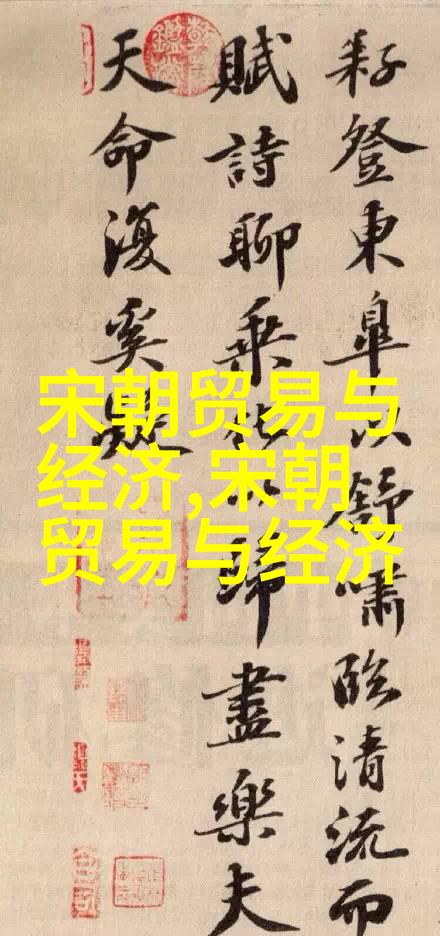 耔登東皐以舒嘯臨清流而
賦詩聊乗化以歸盡樂夫
天命復奚疑
宋朝贸易与
经济,宋朝
贸易与经济